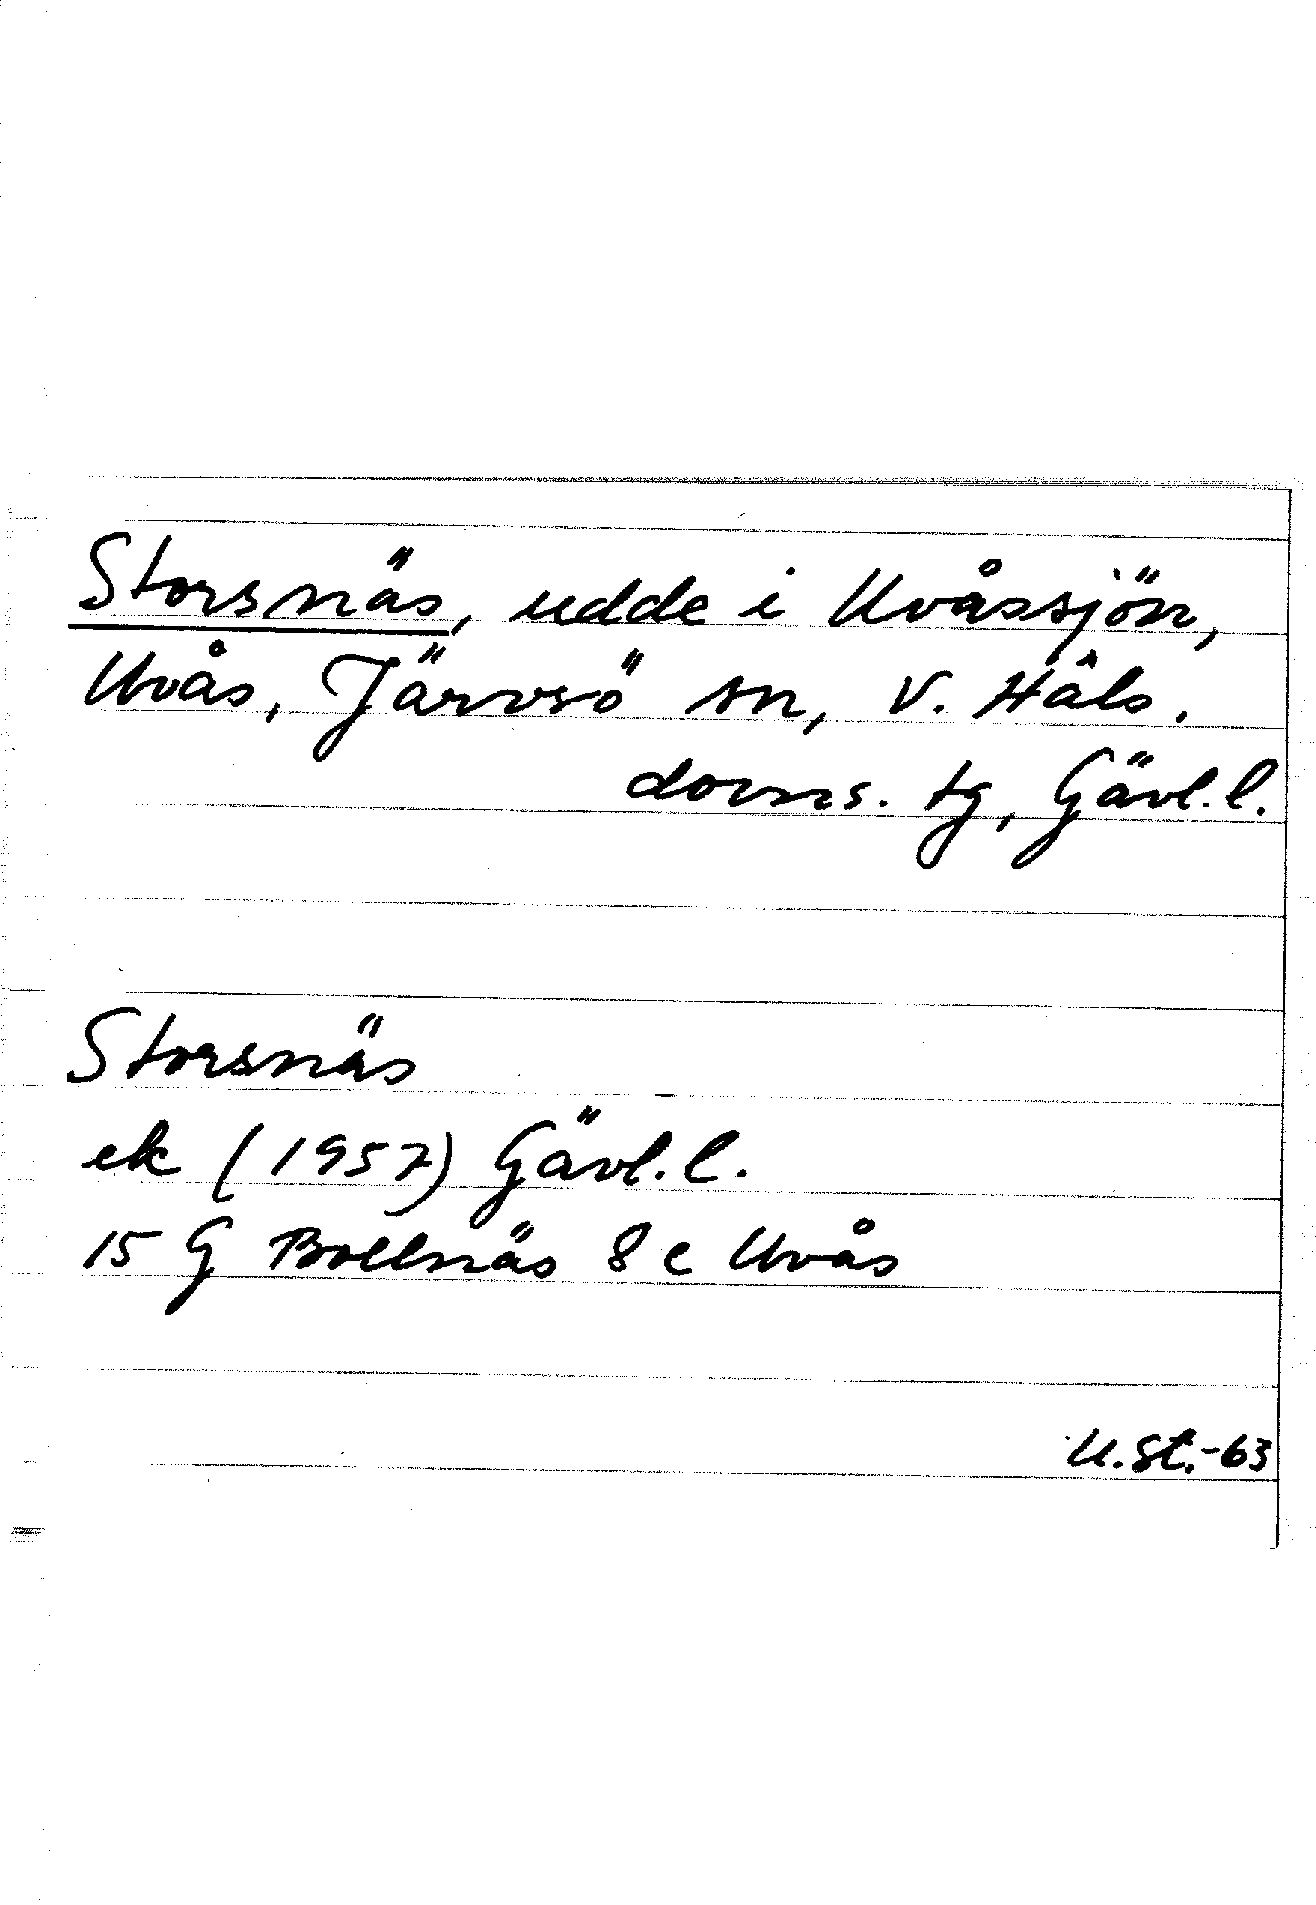 Storsnäs, udde i Uvåssjön,
Uvås, Järvsö sn, V. Häls.
doms. tg, Gävl. l.
Storsnäs
ek (1957) Gävl. l.
15 G Bollnäs 8 c Uvås
U. St. -63